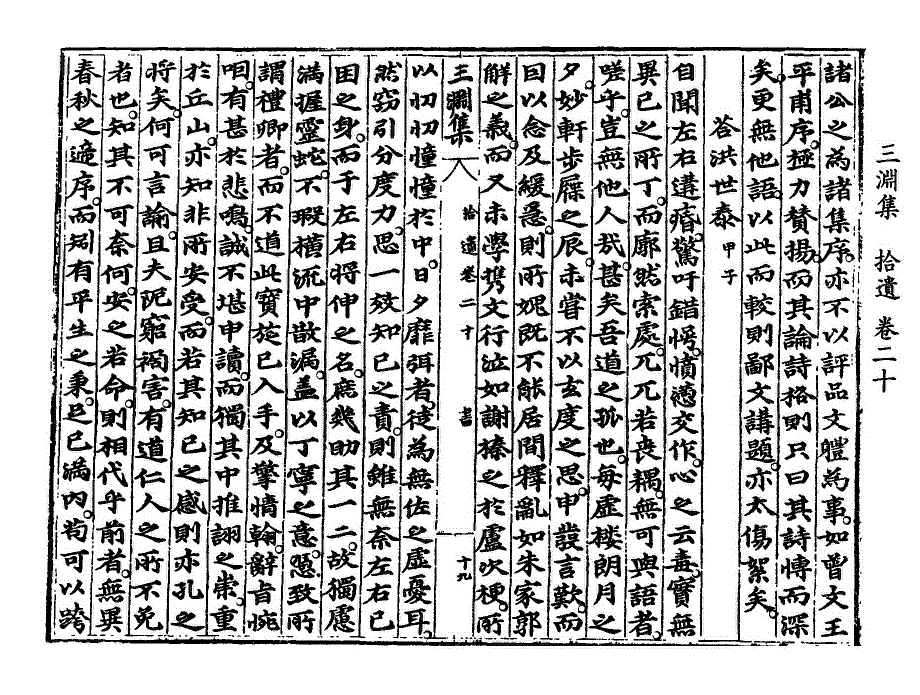 諸公之為諸集序。亦不以評品文體為事。如曾文王
平甫序。極力賛揚。而其論詩格則只曰其詩博而深
矣。更無他語。以此而較則鄙文講題。亦太傷絮矣。
答洪世泰 甲子
自聞左右遘瘠。驚吁錯愕。憤懣交作。心之云毒。實無
異己之所丁。而廓然索處。兀兀若喪耦。無可與語者。
嗟乎。豈無他人哉。甚矣吾道之孤也。每虛樓朗月之
夕。妙軒步屧之辰。未嘗不以玄度之思。申謨言歎。而
回以念及緩急。則所媿既不能居間釋亂如朱家郭
解之義。而又未學携文行泣如謝榛之於盧次楩。所
三淵集 拾遺卷二十 書 十九
以忉忉憧憧於中。日夕靡弭者。徒為無佐之虛憂耳。
然竊引分度力。思一效知己之責。則雖無奈左右已
困之身。而于左右將伸之名。庶幾助其一二。故獨慮
滿握靈蛇。不瑕橫沠中散漏。蓋以丁寧之意。愿致所
謂禮卿者。而不道此寶旋已入手。及擎情翰。辭旨惋
咽。有甚於悲鳴。誠不堪申讀。而獨其中推詡之崇。重
於丘山。亦知非所安受。而若其知己之感則亦孔之
將矣。何可言諭。且夫阨窮禍害。有道仁人之所不免
者也。知其不可奈何。安之若命。則相代乎前者。無異
春秋之適序。而矧有平生之秉。足已滿內。苟可以跨
三淵集 拾遺 卷二十